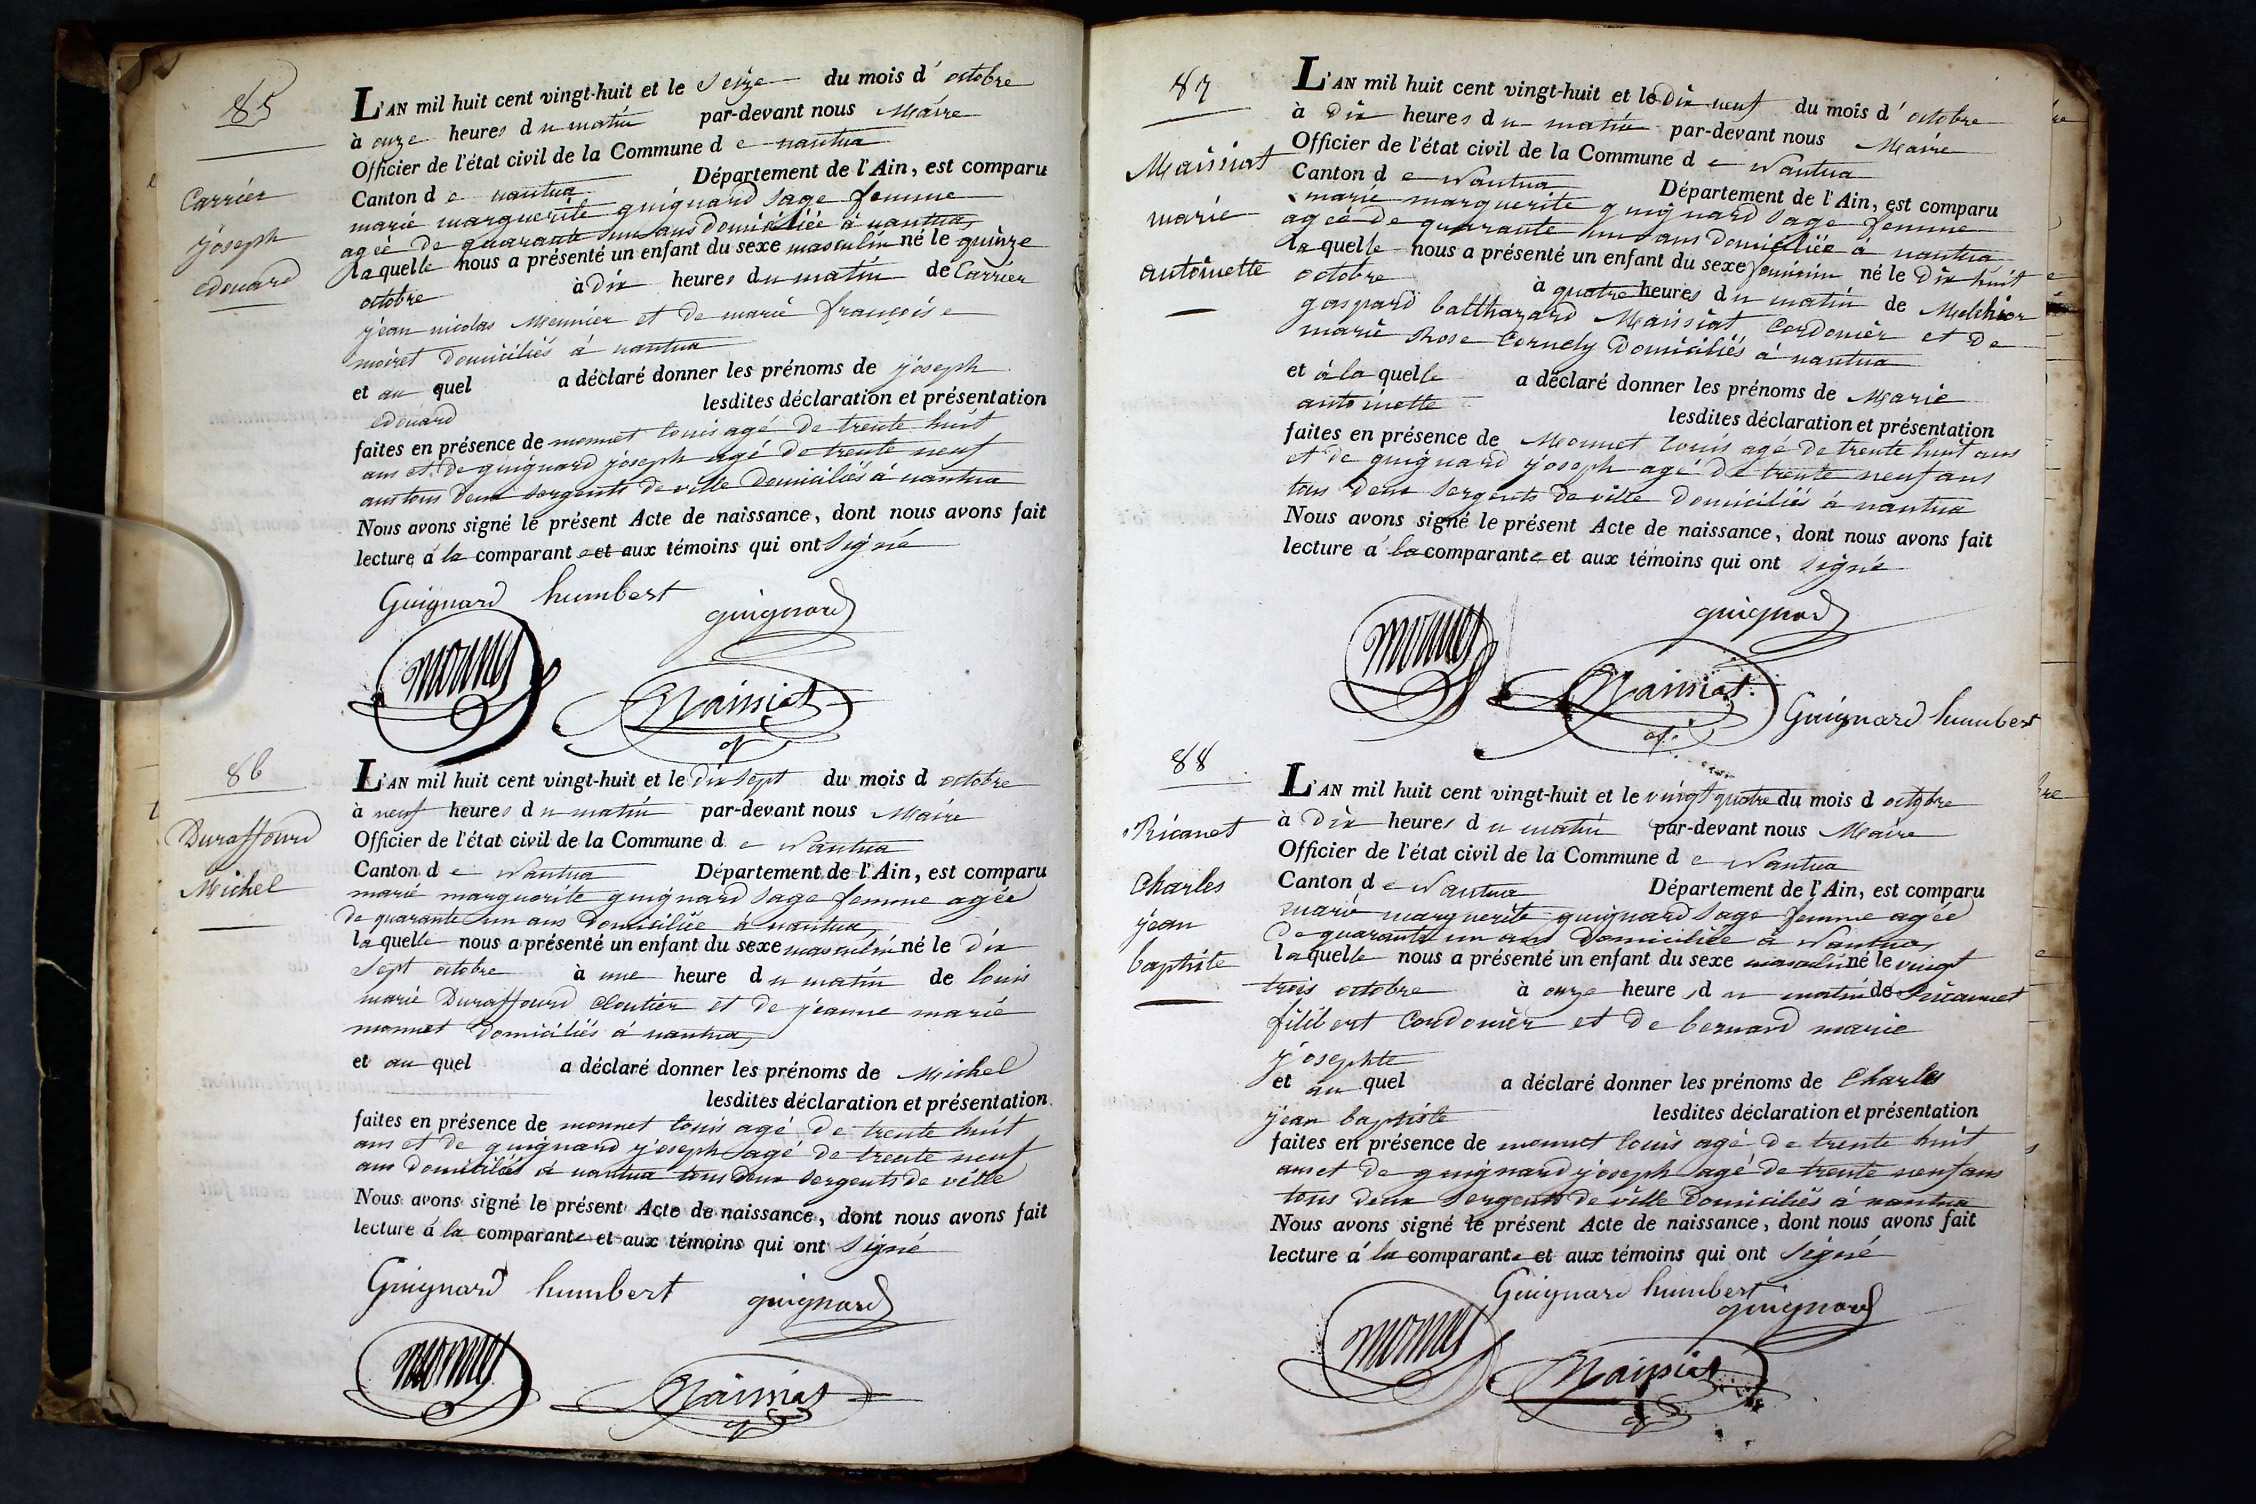 85
Carrier
joseph
edouard
L'AN mil huit cent vingt-huit et le seize du mois d' octobre
à onze heures du matin par-devant nous Maire
Officier de l'état civil de la Commune de nantua
Canton de nantua Département de l'Ain, est comparu
marie marguerite guignard sage femme
agée de quarante un ans domiciliée à nantua,
laquelle nous a présenté un enfant du sexe masculin né le quinze
octobre à dix heures du matin de Carrier
jean nicolas Meunier et de marie françoise
moiret domiciliés à nantua
et au quel a déclaré donner les prénoms de joseph
edouard lesdites déclaration et présentation
faites en présence de monnet louis agé de trente huit
ans et de guignard joseph agé de trente neuf
ans tous deux sergents de ville domiciliés à nantua
Nous avons signé le présent Acte de naissance, dont nous avons fait
lecture á la comparante et aux témoins qui ont signé
Guignard humbert guignard
monnet Maissiat
86
Duraffourd
Michel
L'AN mil huit cent vingt-huit et le dix sept du mois d octobre
à neuf heures du matin par-devant nous Maire
Officier de l'état civil de la Commune de Nantua
Canton de Nantua Département de l'Ain, est comparu
marie marguerite guignard sage femme agée
de quarante un ans domiciliée à nantua,
laquelle nous a présenté un enfant du sexe masculin né le dix
sept octobre à une heure du matin de louis
marie Duraffourd Cloutier et de jeanne marie
monnet domiciliés à nantua,
et au quel a déclaré donner les prénoms de Michel
lesdites déclaration et présentation
faites en présence de monnet louis agé de trente huit
ans et de guignard joseph agé de trente neuf
ans domiciliés à nantua tous deux sergents de ville
Nous avons signé le présent Acte de naissance, dont nous avons fait
lecture á la comparante et aux témoins qui ont signé
Guignard humbert guignard
monnet Maissiat
87
Maissiat
marie
antoinette
L'AN mil huit cent vingt-huit et le dix neuf du mois d' octobre
à dix heures du matin par-devant nous Maire
Officier de l'état civil de la Commune de Nantua
Canton de Nantua Département de l'Ain, est comparu
marie marguerite guignard sage femme
agée de quarante un ans domiciliée à nantua
laquelle nous a présenté un enfant du sexe feminin né le dix huit
octobre à quatre heures du matin de Melchior
gaspard balthazard Maissiat, Cordonier et de
marie Rose Cornely domiciliés à nantua
et à la quelle a déclaré donner les prénoms de Marie
antoinette lesdites déclaration et présentation
faites en présence de Monnet louis agé de trente huit ans
et de guignard joseph agé de trente neuf ans
tous deux sergents de ville domiciliés à nantua
Nous avons signé le présent Acte de naissance, dont nous avons fait
lecture á la comparante et aux témoins qui ont signé
guignard
monnet Maissiat Guignard humbert
88
Ricanet
Charles
jean
baptiste
L'AN mil huit cent vingt-huit et le vingt quatre du mois d octobre
à dix heures du matin par-devant nous Maire
Officier de l'état civil de la Commune de Nantua
Canton de Nantua Département de l'Ain, est comparu
marie marguerite guignard sage femme agée
de quarante un ans domiciliée à Nantua,
laquelle nous a présenté un enfant du sexe masculin né le vingt
trois octobre à onze heures du matin de Ricannet
filibert Cordonier et de bernard marie
josephte
et au quel a déclaré donner les prénoms de Charles
jean baptiste lesdites déclaration et présentation
faites en présence de monnet louis agé de trente huit
ans et de guignard joseph agé de trente neuf ans
tous deux sergents de ville domiciliés à nantua
Nous avons signé le présent Acte de naissance, dont nous avons fait
lecture á la comparante et aux témoins qui ont signé
Guignard humbert
guignard
monnet Maissiat